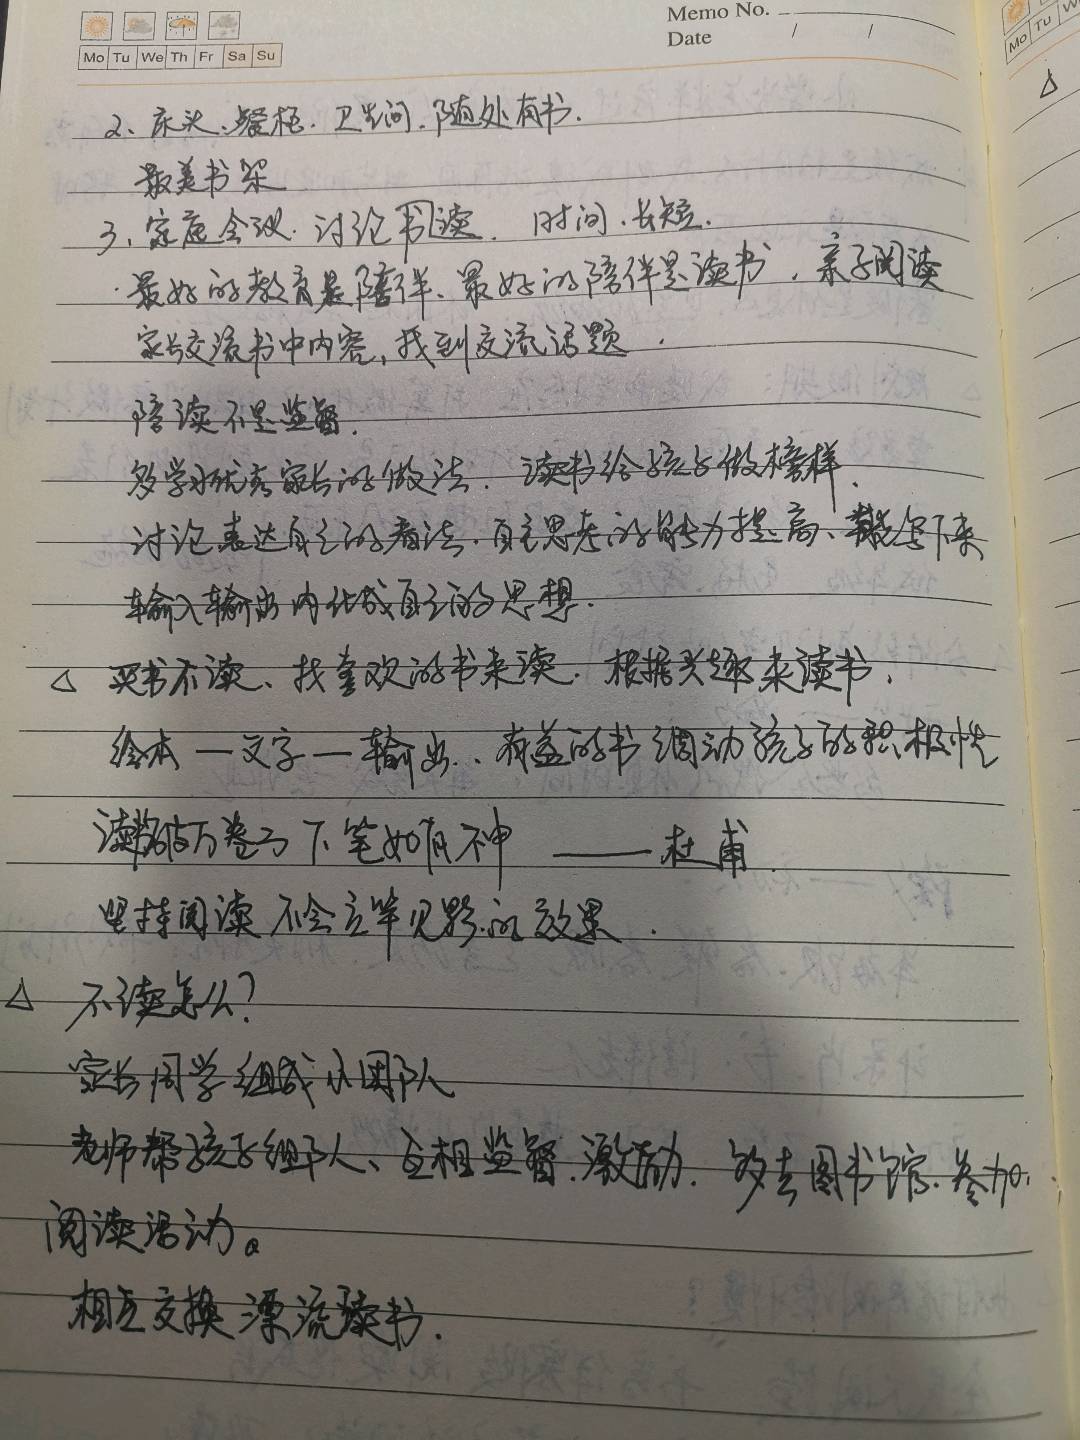 Memo No.
Date / /
Mo Tu We Th Fr Sa Su
Mo Tu W
2、床头、餐桌、卫生间、随处有书.
最美书架
3、家庭会议. 讨论书读. 时间、长短.
·最好的教育是陪伴、最好的陪伴是读书，亲子阅读
家长交流书中内容，找到交流话题.
陪读不是监督.
多学习优秀家长的做法. 读书给孩子做榜样.
讨论表达自己的看法. 自主思考的能力提高、写下来
输入输出内化成自己的思想.
△ 买书不读、找喜欢的书来读. 根据兴趣来读书.
绘本—文字—输出.. 有益的书调动孩子的积极性
读书破万卷 下笔如有神 ——杜甫
坚持阅读 不会立竿见影的效果.
△ 不读怎么?
家长同学组成小团队
老师帮孩子组队、互相监督. 激励. 多去图书馆. 参加.
阅读活动。
相互交换 漂流读书.